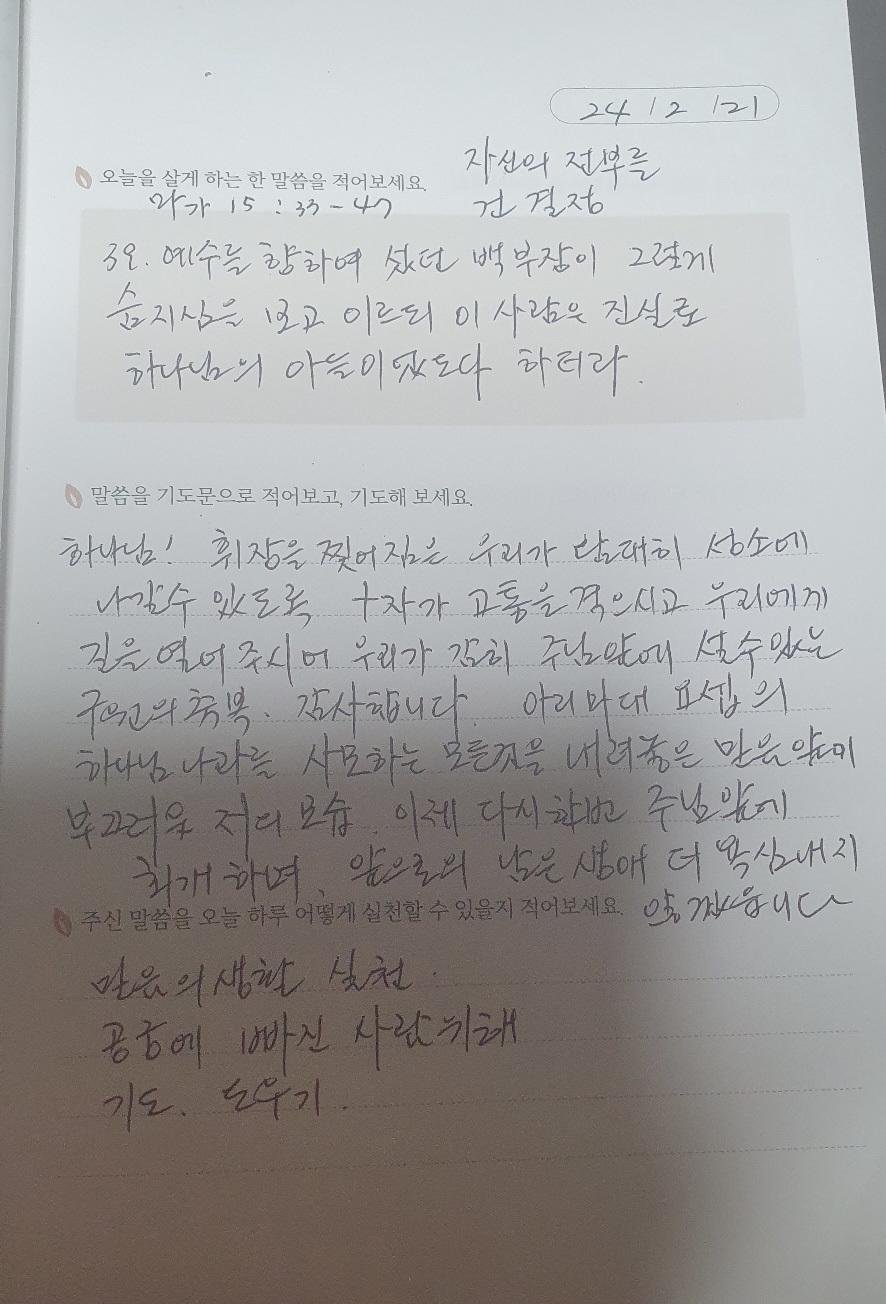 24 / 2 / 21
자신의 전부를
건 결정
오늘을 살게 하는 한 말씀을 적어보세요.
마가 15 : 33 - 47
39. 예수를 향하여 섰던 백부장이 그렇게
숨지심을 보고 이르되 이 사람은 진실로
하나님의 아들이었도다 하더라.
말씀을 기도문으로 적어보고, 기도해 보세요.
하나님! 휘장을 찢어짐은 우리가 담대히 성소에
나갈수 있도록 십자가 고통을 겪으시고 우리에게
길을 열어 주시어 우리가 감히 주님앞에 설수있는
구원의 축복. 감사합니다. 아리마대 요셉의
하나님 나라를 사모하는 모든것을 내려놓은 믿음 앞에
부끄러운 저의 모습. 이제 다시한번 주님앞에
회개하며, 앞으로의 남은 생애 더 욕심내지
않겠습니다
주신 말씀을 오늘 하루 어떻게 실천할 수 있을지 적어보세요.
믿음의 생활 실천.
공중에 빠진 사람 위해
기도. 도우기.